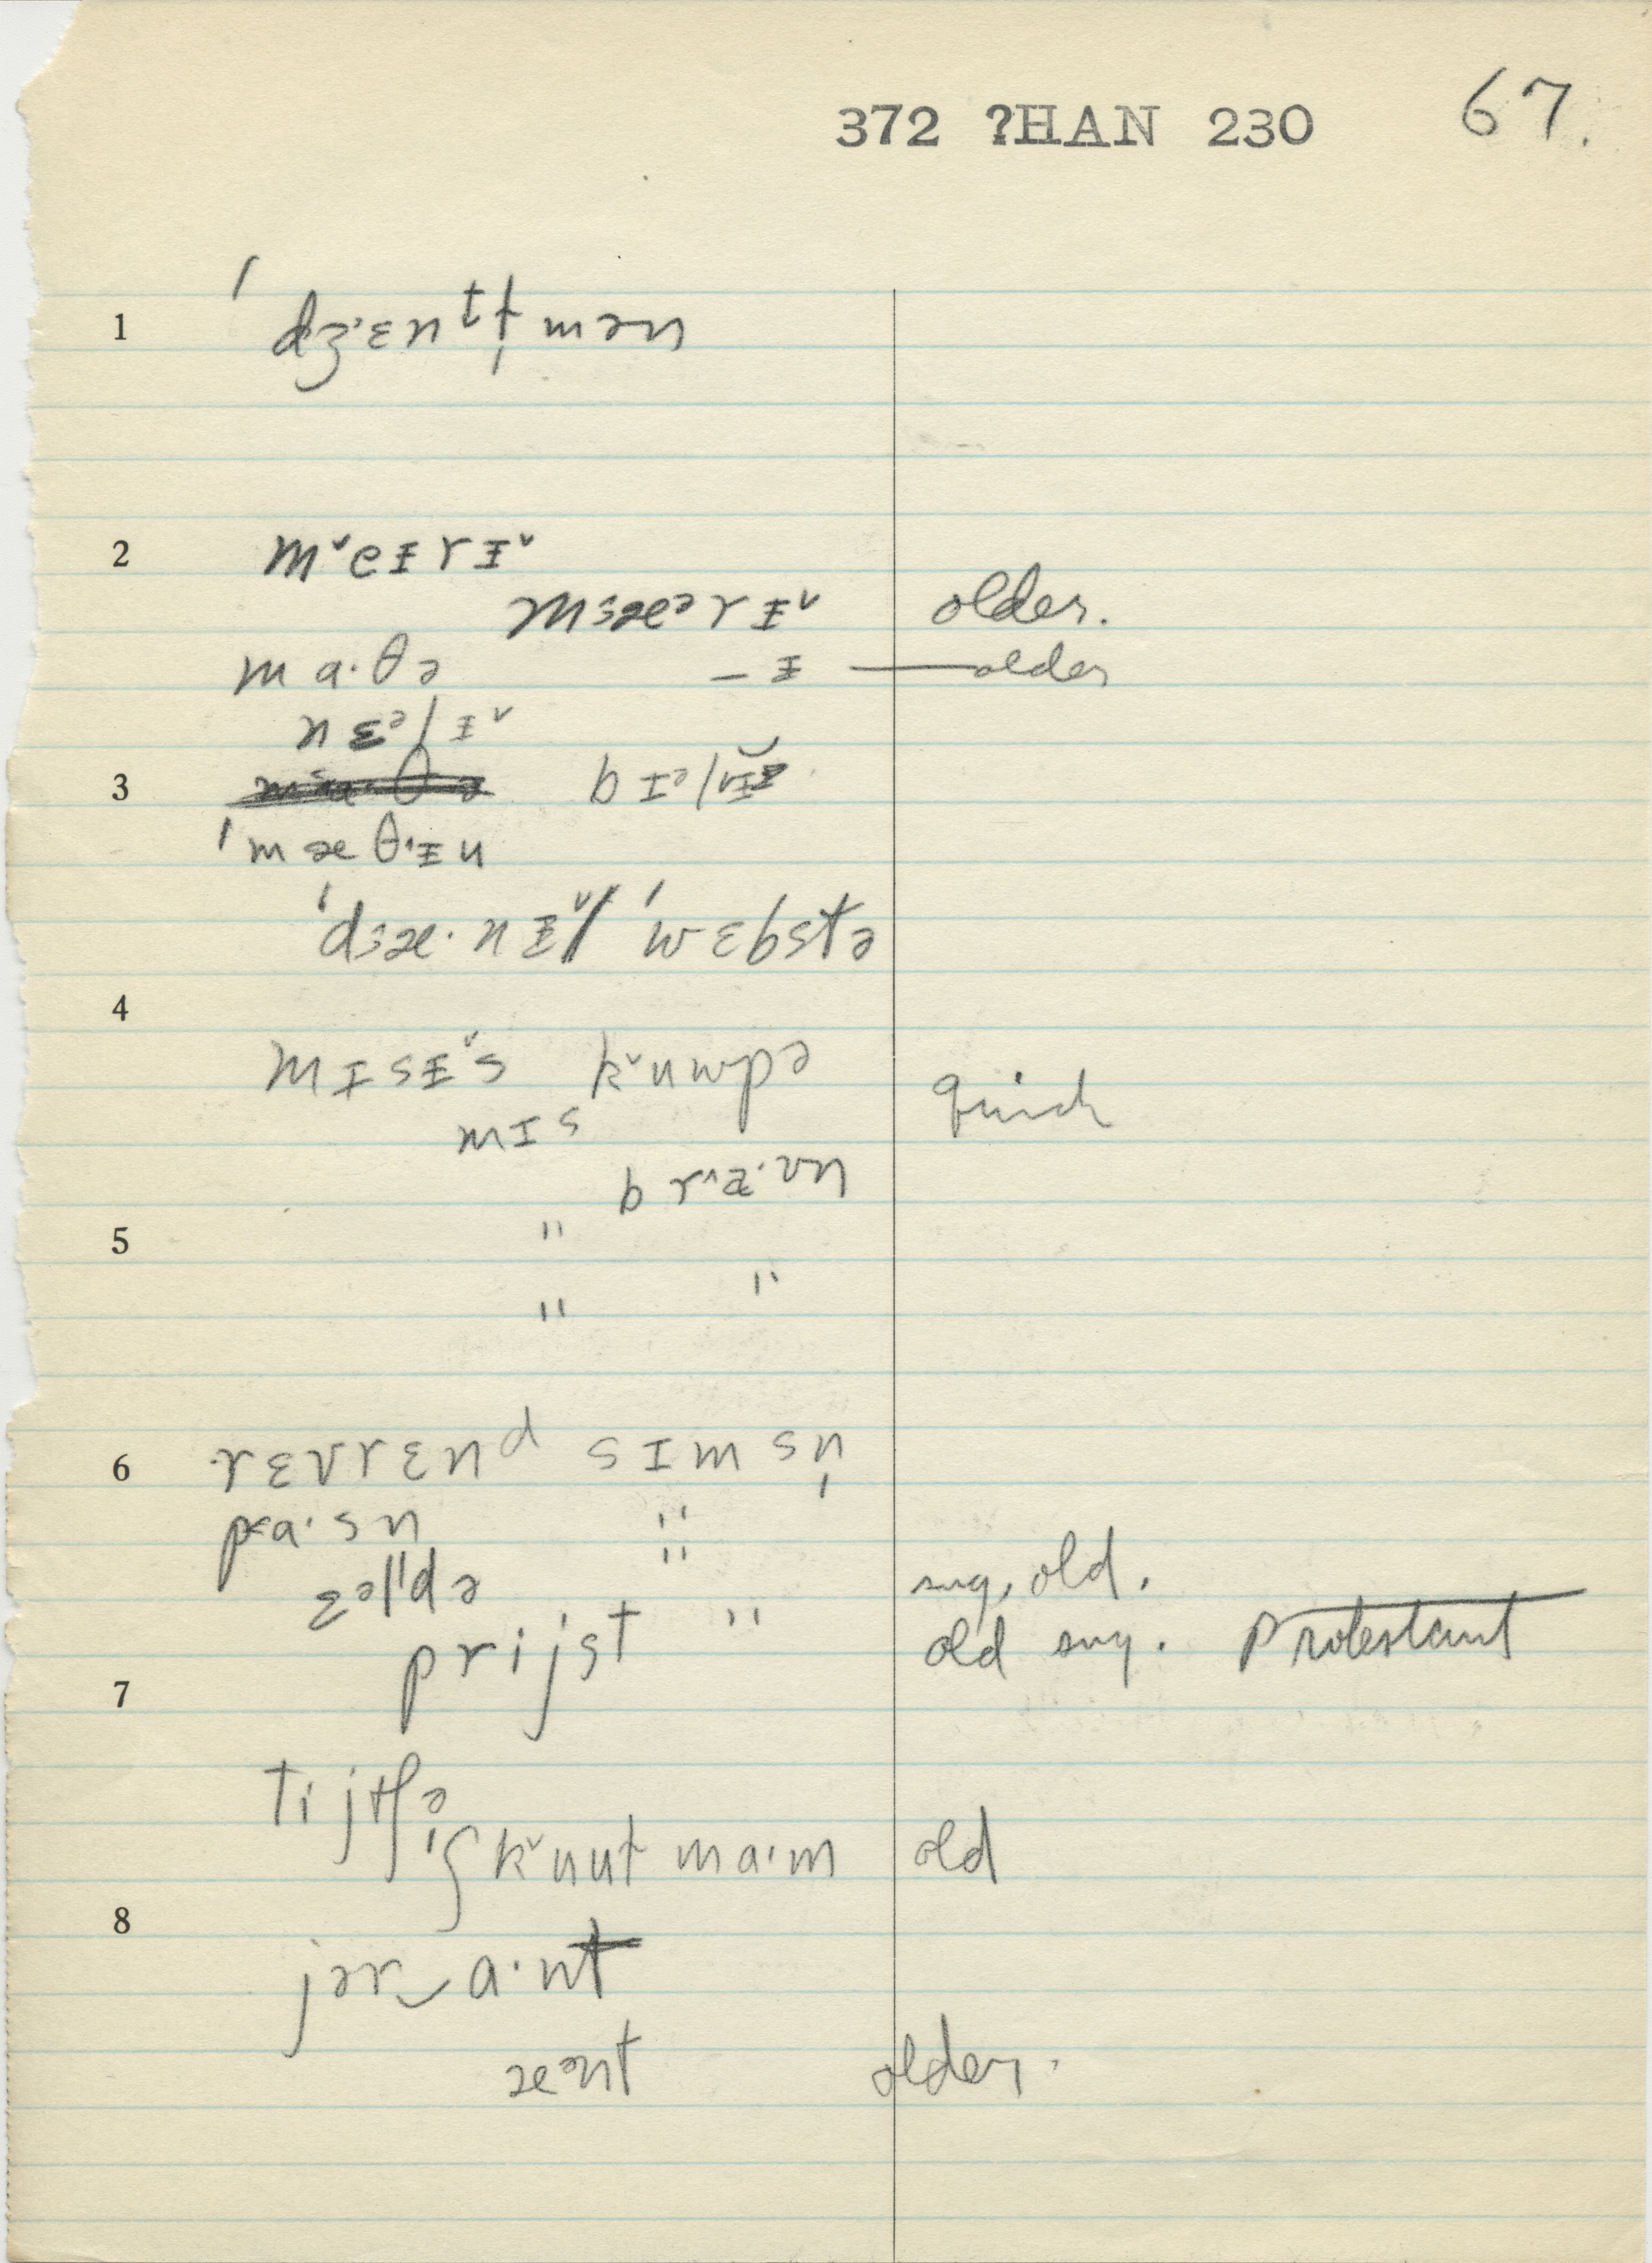 372 ?HAN 230 67.
1 ˈdʒ˒ɛnᵗɫ̩mən
2 m˅eɪrɪ˅
m꞉æᵊrɪ˅ older.
ma·θə –ɪ — older
nɛᵊlɪ˅
3 bɪᵊl
ˈmæθ·ɪu
ˈd꞉æ·nɪ˅l ˈwɛbstə
4
mɪsɪ˅s k˅uwpə quick
mɪs
br˄æ·ʊn
5 "
" "
6 rɛvrɛnᵈ sɪmsn̩
pa·sn "
" ɛᵊldə sug. old.
prijst " old sug. Protestant
7
tijtʃə
skuuɫ ma·m old
8
jər‿a·nt
æᵊnt older.